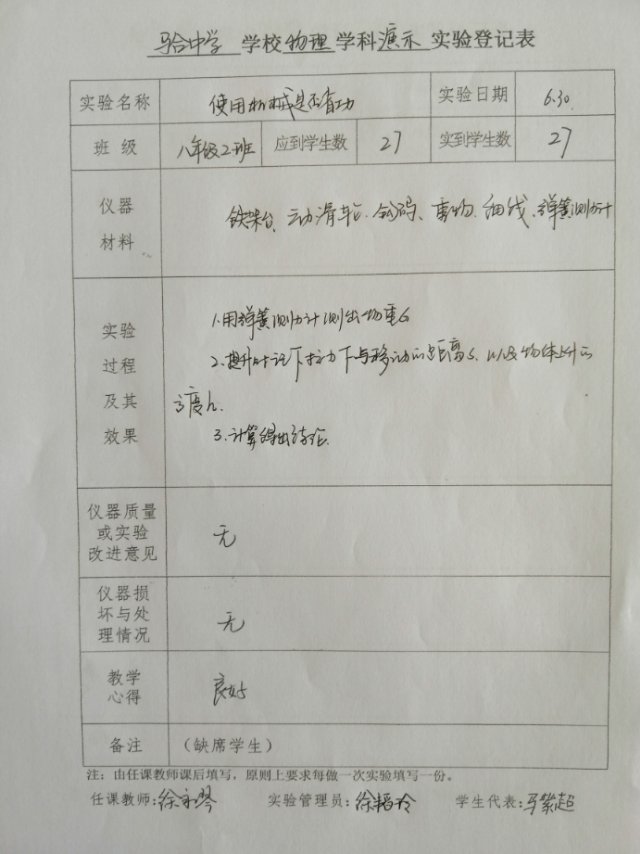 马合中学 学校 物理 学科 演示 实验登记表
实验名称 使用机械是否省功 实验日期 6.30
班 级 八年级2班 应到学生数 27 实到学生数 27
仪器
材料
铁架台、动滑轮、钩码、重物、细线、弹簧测力计
实验
过程
及其
效果
1.用弹簧测力计测出物重G
2.提升时记下拉力F与移动的距离S,以及物体上升的
高度h.
3.计算得出结论.
仪器质量
或实验
改进意见
无
仪器损
坏与处
理情况
无
教学
心得
良好
备注 (缺席学生)
注:由任课教师课后填写,原则上要求每做一次实验填写一份。
任课教师:徐 实验管理员:徐 玲 学生代表:马紫超